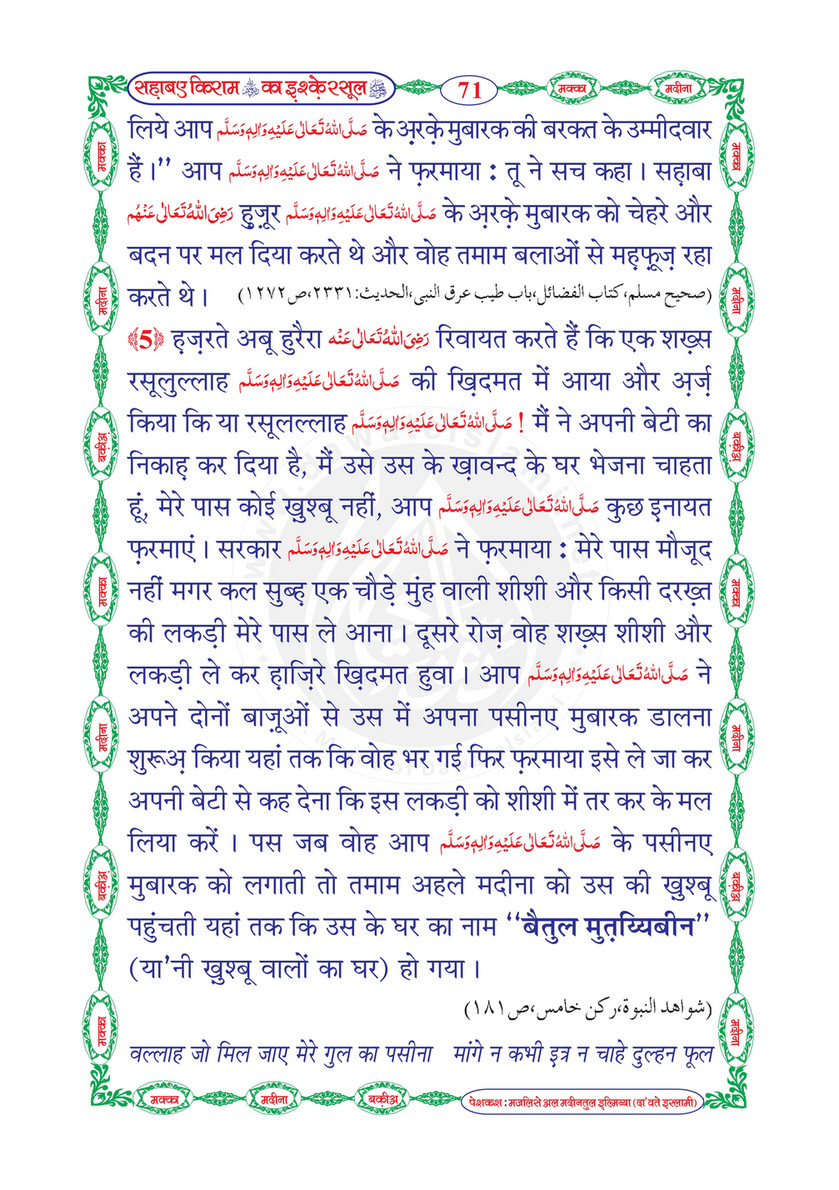 सह़ाबए किराम का इ़श्के़ रसूल 71 मक्का मदीना
लिये आप صَلَّى اللهُ تَعَالٰى عَلَيْهِ وَاٰلِهٖ وَسَلَّم के अ़रक़े मुबारक की बरकत के उम्मीदवार
हैं ।’’ आप صَلَّى اللهُ تَعَالٰى عَلَيْهِ وَاٰلِهٖ وَسَلَّم ने फ़रमाया : तू ने सच कहा । सह़ाबा
رَضِىَ اللهُ تَعَالٰى عَنْهُم हुज़ूर صَلَّى اللهُ تَعَالٰى عَلَيْهِ وَاٰلِهٖ وَسَلَّم के अ़रक़े मुबारक को चेहरे और
बदन पर मल दिया करते थे और वोह तमाम बलाओं से मह़फ़ूज़ रहा
करते थे । (صحيح مسلم،كتاب الفضائل،باب طيب عرق النبى،الحديث:٢٣٣١،ص١٢٧٢)
﴾5﴿ ह़ज़रते अबू हुरैरा رَضِىَ اللهُ تَعَالٰى عَنْه रिवायत करते हैं कि एक शख़्स
रसूलुल्लाह صَلَّى اللهُ تَعَالٰى عَلَيْهِ وَاٰلِهٖ وَسَلَّم की ख़िदमत में आया और अ़र्ज़
किया कि या रसूलल्लाह صَلَّى اللهُ تَعَالٰى عَلَيْهِ وَاٰلِهٖ وَسَلَّم ! मैं ने अपनी बेटी का
निकाह़ कर दिया है, मैं उसे उस के ख़ावन्द के घर भेजना चाहता
हूं, मेरे पास कोई ख़ुश्बू नहीं, आप صَلَّى اللهُ تَعَالٰى عَلَيْهِ وَاٰلِهٖ وَسَلَّم कुछ इ़नायत
फ़रमाएं । सरकार صَلَّى اللهُ تَعَالٰى عَلَيْهِ وَاٰلِهٖ وَسَلَّم ने फ़रमाया : मेरे पास मौजूद
नहीं मगर कल सुब्ह़ एक चौड़े मुंह वाली शीशी और किसी दरख़्त
की लकड़ी मेरे पास ले आना । दूसरे रोज़ वोह शख़्स शीशी और
लकड़ी ले कर ह़ाज़िरे ख़िदमत हुवा । आप صَلَّى اللهُ تَعَالٰى عَلَيْهِ وَاٰلِهٖ وَسَلَّم ने
अपने दोनों बाज़ूओं से उस में अपना पसीनए मुबारक डालना
शुरूअ़ किया यहां तक कि वोह भर गई फिर फ़रमाया इसे ले जा कर
अपनी बेटी से कह देना कि इस लकड़ी को शीशी में तर कर के मल
लिया करें । पस जब वोह आप صَلَّى اللهُ تَعَالٰى عَلَيْهِ وَاٰلِهٖ وَسَلَّم के पसीनए
मुबारक को लगाती तो तमाम अहले मदीना को उस की ख़ुश्बू
पहुंचती यहां तक कि उस के घर का नाम ‘‘बैतुल मुत़य्यिबीन’’
(या’नी ख़ुश्बू वालों का घर) हो गया ।
(شواهد النبوة،ركن خامس،ص١٨١)
वल्लाह जो मिल जाए मेरे गुल का पसीना मांगे न कभी इत्र न चाहे दुल्हन फूल
मक्का मदीना बक़ीअ़ पेशकश : मजलिसे अल मदीनतुल इ़ल्मिय्या (दा’वते इस्लामी)
मक्का
मदीना
बक़ीअ़
मक्का
मदीना
बक़ीअ़
मक्का
मक्का
मदीना
बक़ीअ़
मक्का
मदीना
बक़ीअ़
मदीना